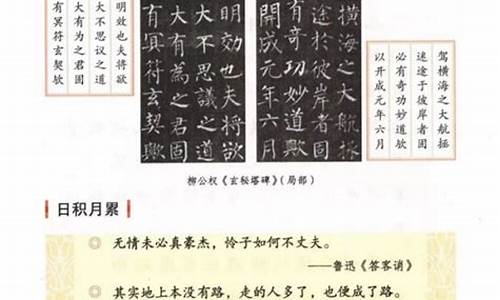 驾横海之大航拯
迷途于彼岸者固
必有奇功妙道欤
以开成元年六月
横海之大航拯
途於彼岸者固
有奇功妙道歟
開成元年六月
明効也夫将欲
大不思議之道
大有為之君固
有冥符玄契歟
明效也夫将欲
大不思议之道
大有为之君固
有冥符玄契欤
柳公权《玄秘塔碑》（局部）
日积月累
◎ 无情未必真豪杰，怜子如何不丈夫。
——鲁迅《答客诮》
◎ 其实地上本没有路，走的人多了，也便成了路。